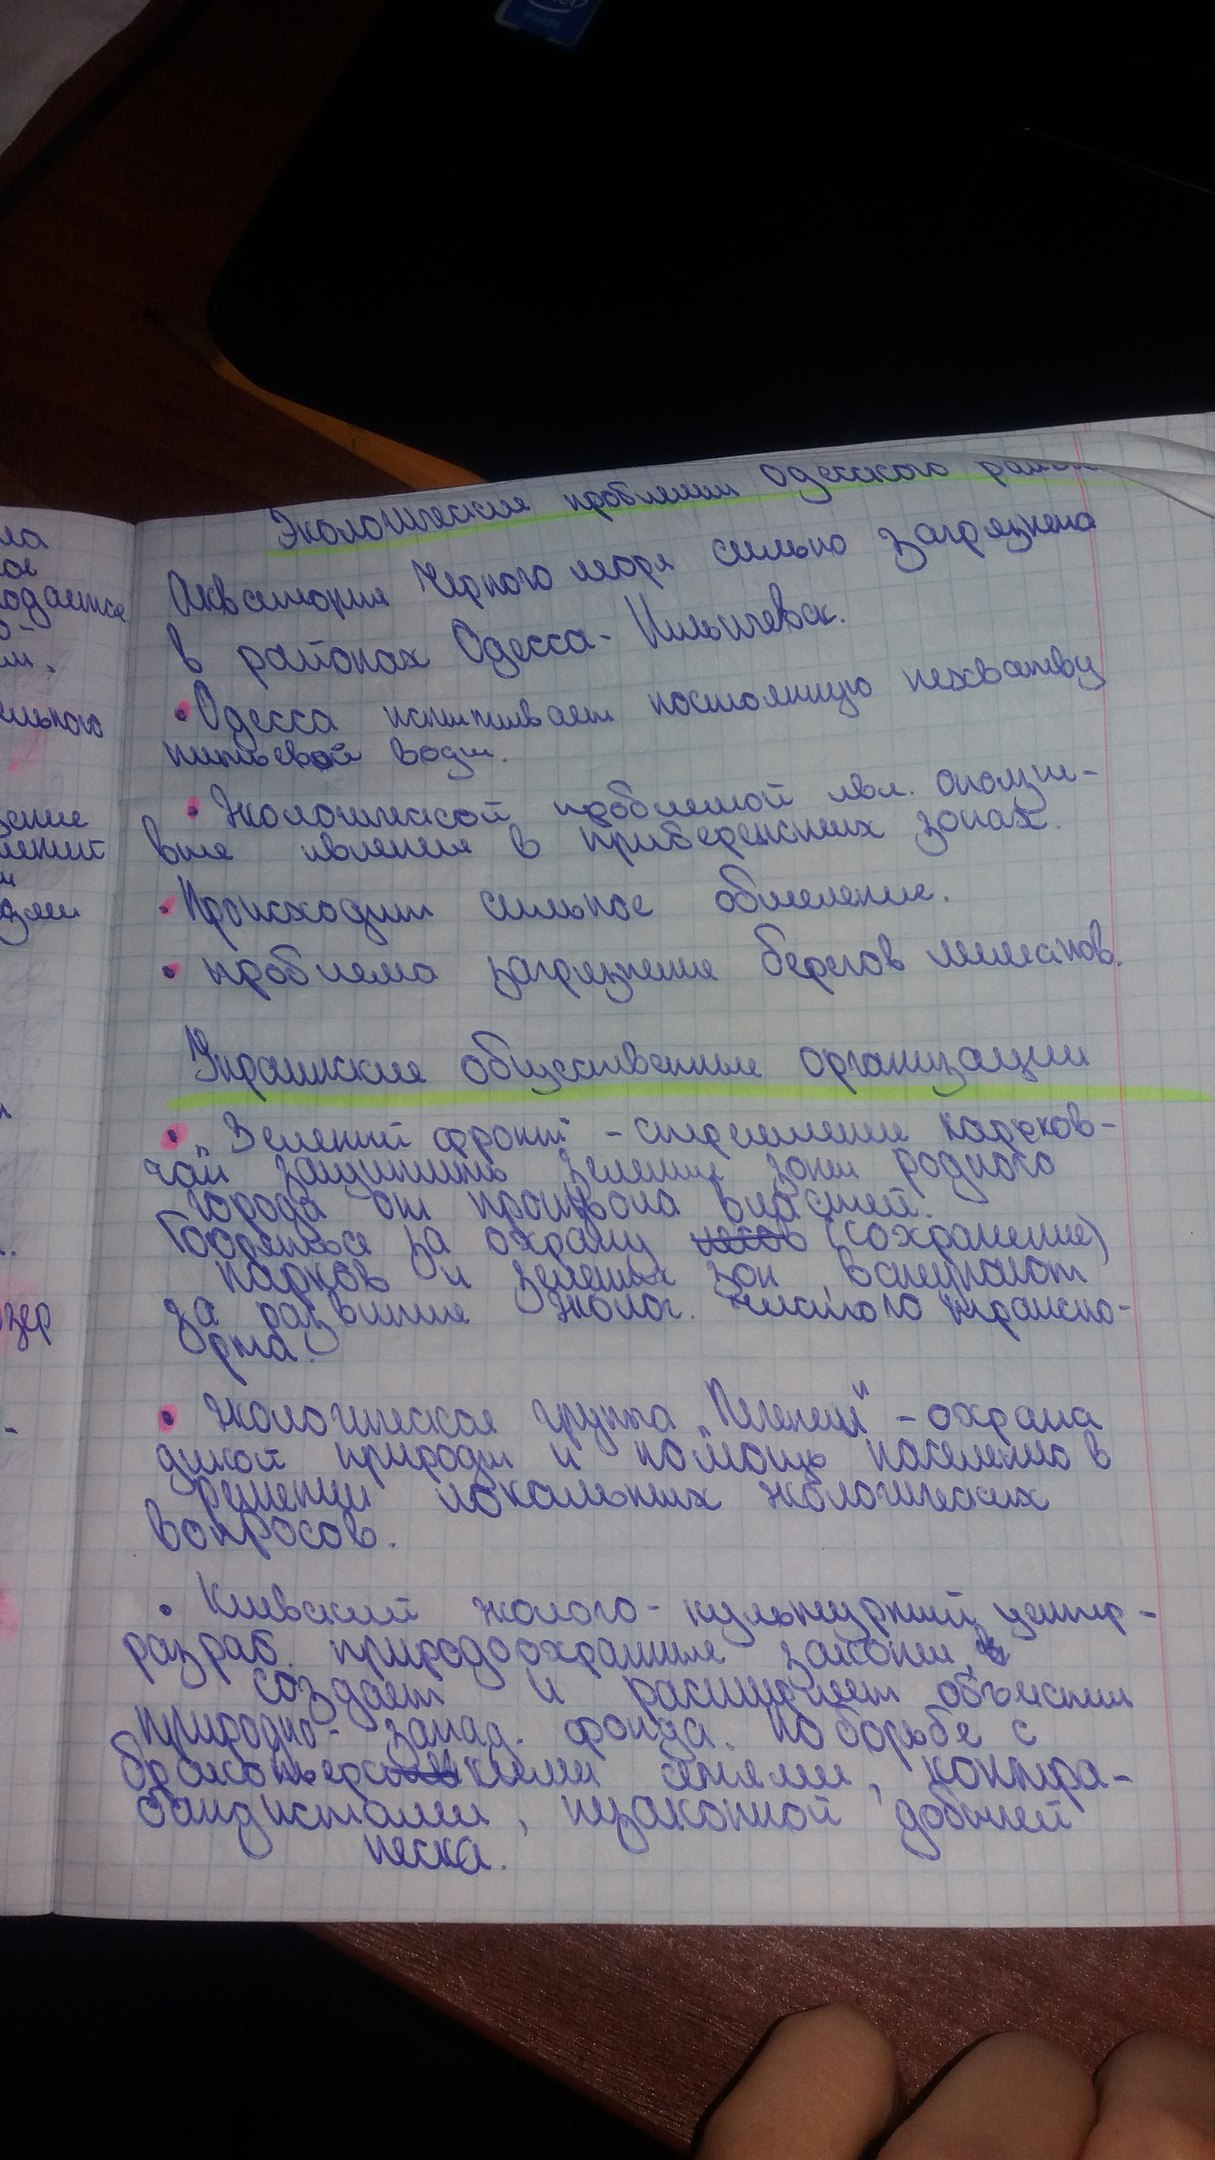 inside
Экологические проблемы Одесского
Акватория Черного моря сильно загрязнена
в районах Одесса- Ильичевск.
• Одесса испытывает постоянную нехватку
питьевой воды.
• Экологической проблемой явл. оползне-
вые явления в прибережных зонах.
• Происходит сильное обмеление.
• проблема загрязнение берегов лиманов.
Украинские общественные организации
• „Зеленый фронт" - стремление харьков-
чан защитить зеленые зоны родного
города от произвола властей.
Бороться за охрану (сохранение)
парков и зеленых зон, выступают
за развитие эколог. чистого транспо-
рта.
• Экологическая группа „Печенеги" - охрана
дикой природы и помощь населению в
решении локальных экологических
вопросов.
• Киевский эколого-культурный центр -
разраб. природоохранные законы,
создает и расширяет объекты
природно- запад. фонда. по борьбе с
браконьерскими, контра-
бандистами, незаконной добычей
песка.
ла
ое
одается
ельного
зер